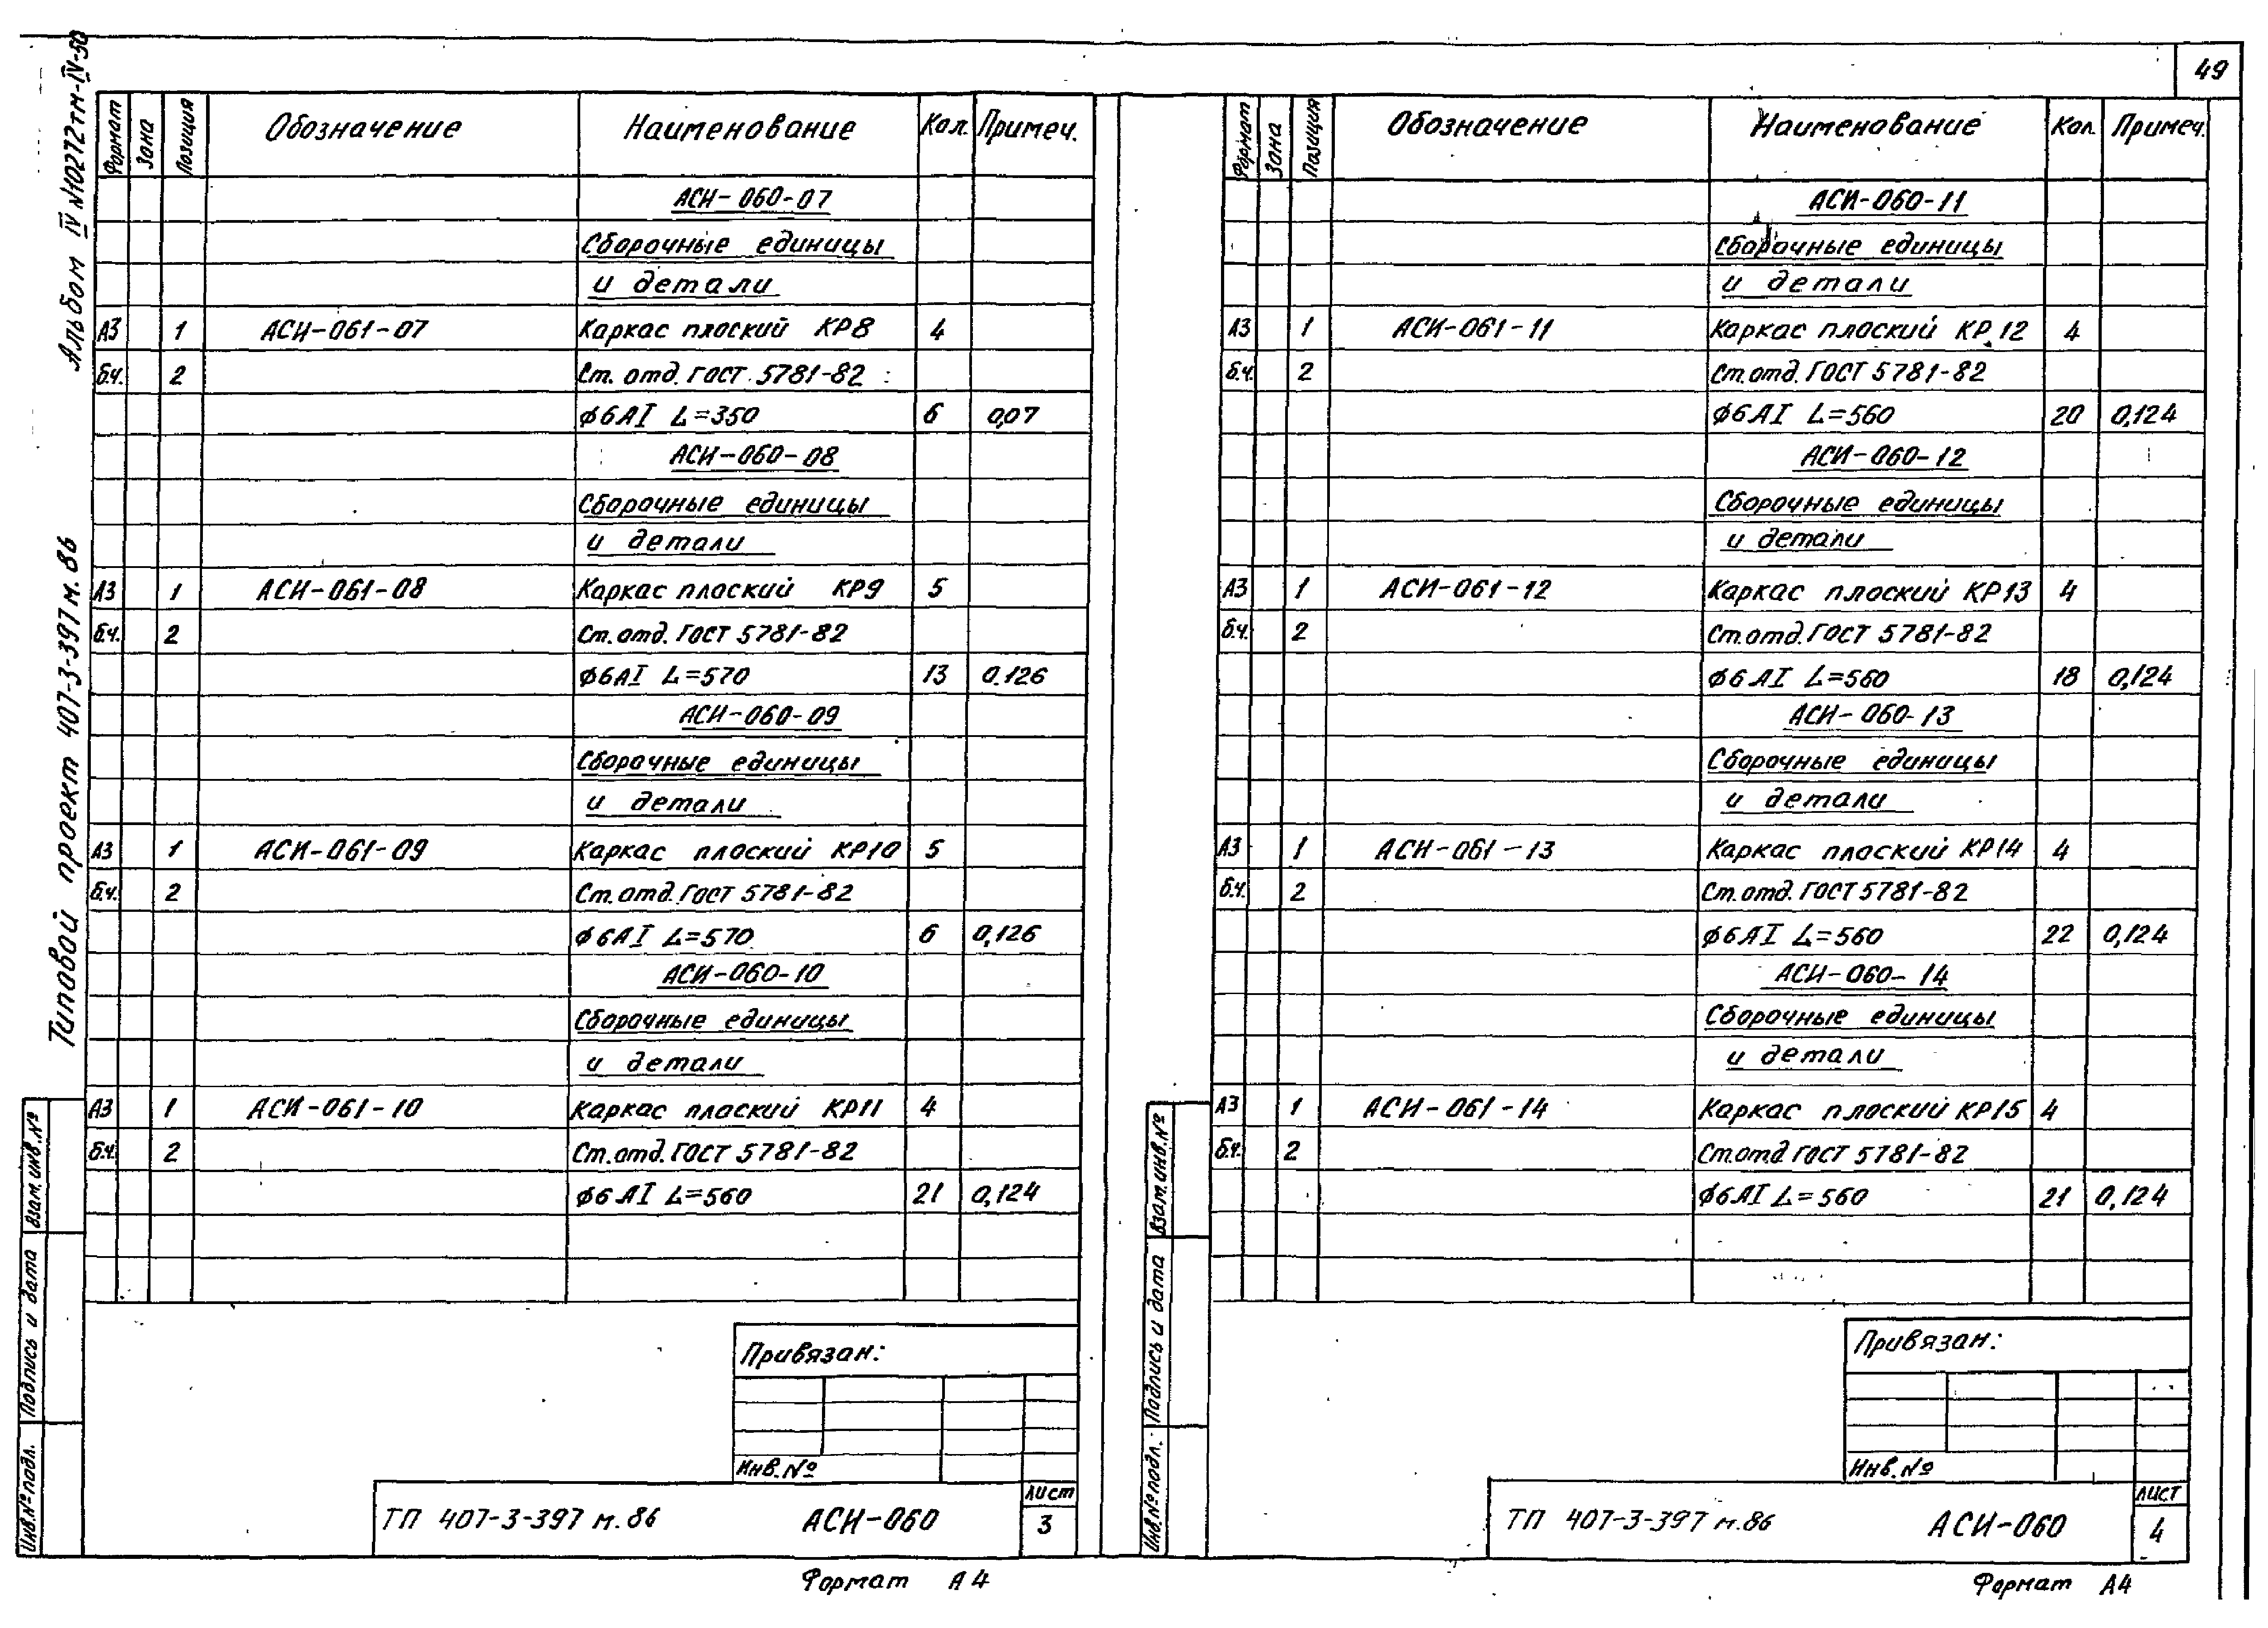 49
Альбом IV №10272тм-IV-50
Типовой проект 407-3-397м.86
Формат Зона Позиция Обозначение Наименование Кол. Примеч.
АСИ-060-07
Сборочные единицы
и детали
А3 1 АСИ-061-07 Каркас плоский КР8 4
б.ч. 2 Ст. отд. ГОСТ 5781-82
ϕ6АI L=350 6 0,07
АСИ-060-08
Сборочные единицы
и детали
А3 1 АСИ-061-08 Каркас плоский КР9 5
б.ч. 2 Ст. отд. ГОСТ 5781-82
ϕ6АI L=570 13 0.126
АСИ-060-09
Сборочные единицы
и детали
А3 1 АСИ-061-09 Каркас плоский КР10 5
б.ч. 2 Ст. отд. ГОСТ 5781-82
ϕ6АI L=570 6 0,126
АСИ-060-10
Сборочные единицы
и детали
А3 1 АСИ-061-10 Каркас плоский КР11 4
б.ч. 2 Ст. отд. ГОСТ 5781-82
ϕ6АI L=560 21 0,124
Взам. инв. №
Подпись и дата
Инв. № подл.
Привязан:
Инв. №
ТП 407-3-397 м.86 АСИ-060
лист
3
Формат А4
Формат Зона Позиция Обозначение Наименование Кол. Примеч.
АСИ-060-11
Сборочные единицы
и детали
А3 1 АСИ-061-11 Каркас плоский КР12 4
б.ч. 2 Ст. отд. ГОСТ 5781-82
ϕ6АI L=560 20 0,124
АСИ-060-12
Сборочные единицы
и детали
А3 1 АСИ-061-12 Каркас плоский КР13 4
б.ч. 2 Ст. отд. ГОСТ 5781-82
ϕ6АI L=560 18 0,124
АСИ-060-13
Сборочные единицы
и детали
А3 1 АСИ-061-13 Каркас плоский КР14 4
б.ч. 2 Ст. отд. ГОСТ 5781-82
ϕ6АI L=560 22 0,124
АСИ-060-14
Сборочные единицы
и детали
А3 1 АСИ-061-14 Каркас плоский КР15 4
б.ч. 2 Ст. отд. ГОСТ 5781-82
ϕ6АI L=560 21 0,124
Взам. инв. №
Подпись и дата
Инв. № подл.
Привязан:
Инв. №
ТП 407-3-397 м.86 АСИ-060
лист
4
Формат А4